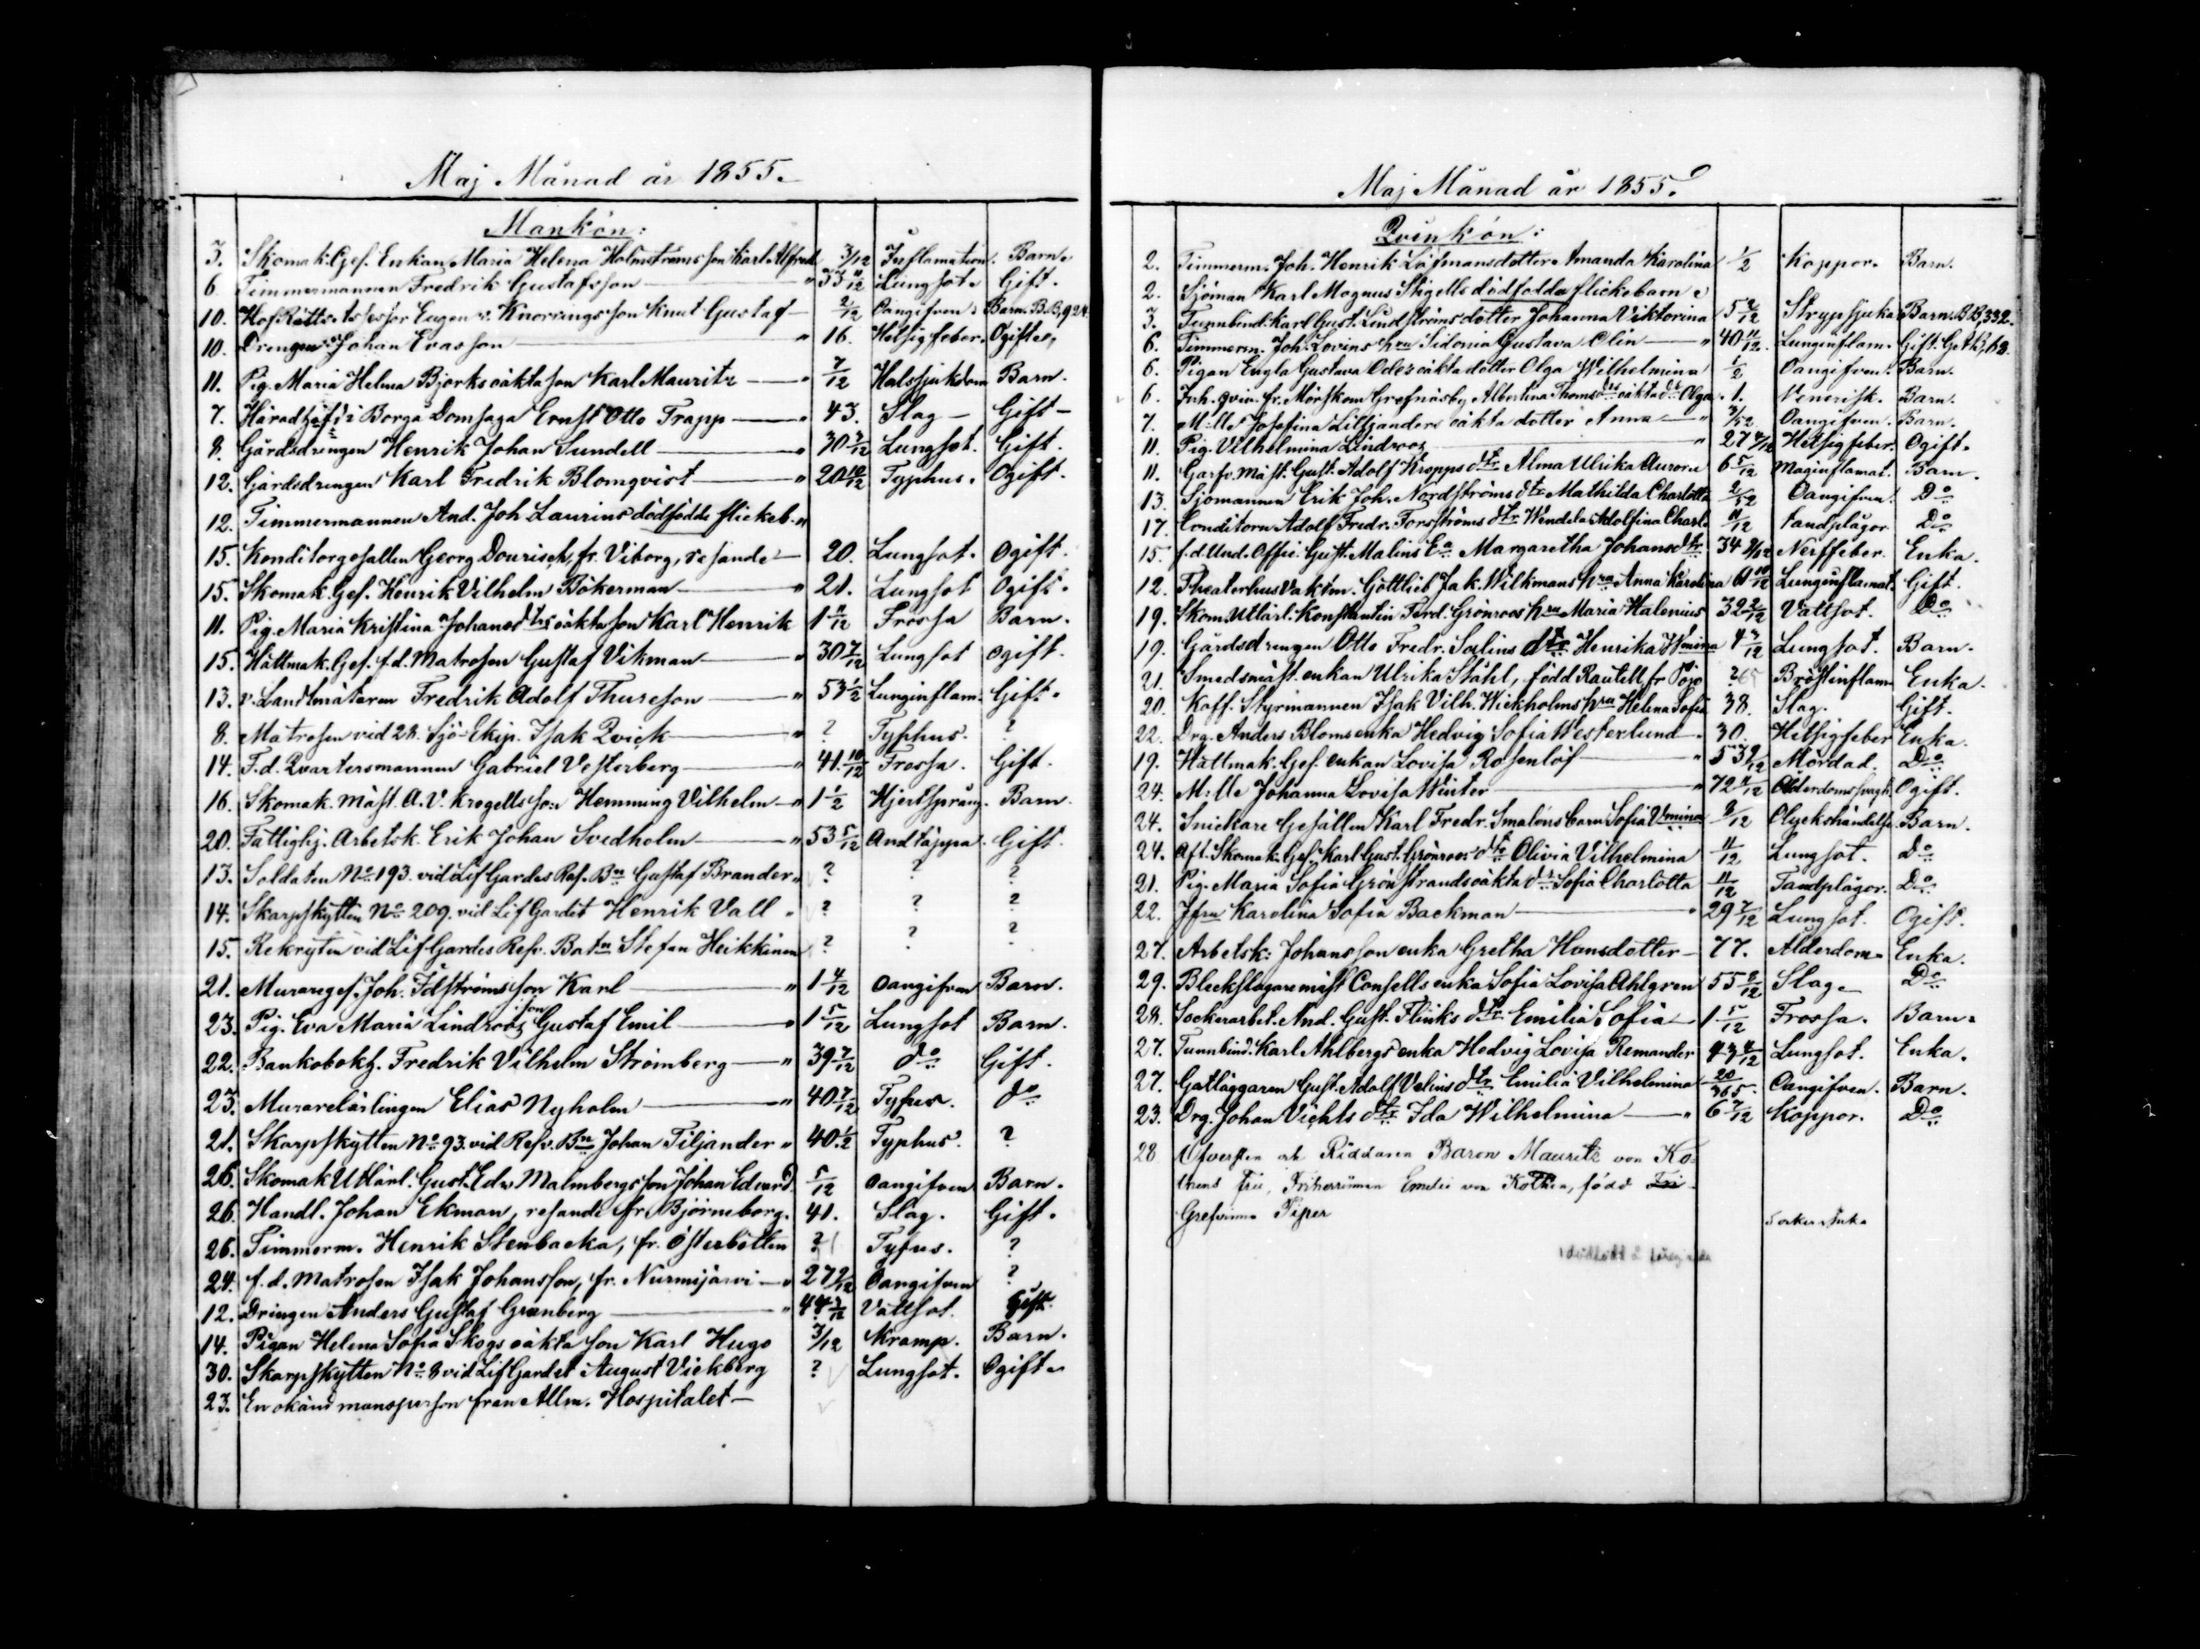 Maj Månad år 1855.
Mankön:
3. Skomak. Ges. Enkan Maria Helena Holmströms son Karl Alfred 3/12 Inflamation. Barn.
6 Timmermannen Fredrik Gustafsson — " 33 11/12 Lungsot. Gift.
10. HofRätts Assessor Eugen v. Knorrings son Knut Gustaf — 2/12 Oangifven. Barn. B.B. 924.
10. Drengen Johan Evasson — " 16. Hetsig feber. Ogift.
11. Pig. Maria Helena Björks oäkta son Karl Mauritz — 7/12 Halssjukdom Barn.
7. Häradshöfd. i Borgå Domsaga Ernst Otto Trapp — 43. Slag — Gift —
8. Gårdsdrengen Henrik Johan Sundell — 30 3/12 Lungsot. Gift.
12. Gårdsdrengen Karl Fredrik Blomqvist — " 20 10/12 Typhus. Ogift.
12. Timmermannen And. Joh. Laurins dödfödde flickeb. "
15. Konditorgesällen Georg Dourisch, fr. Viborg, resande — 20. Lungsot. Ogift.
15. Skomak. Ges. Henrik Vilhelm Bökerman — " 21. Lungsot Ogift.
11. Pig. Maria Kristina Johansdtrs oäkta son Karl Henrik 1 11/12 Frossa Barn.
15. Hattmak. Ges. f.d. Matrosen Gustaf Vikman — " 30 7/12 Lungsot Ogift.
13. v. Landtmäteren Fredrik Adolf Thureson — " 53 1/2 Lunginflam. Gift.
8. Matrosen vid 28. Sjö-Ekip. Isak Qvick — " ? Typhus. ?
14. F.d. Qvartersmannen Gabriel Vesterberg — " 41 10/12 Frossa. Gift.
16. Skomak. Mäst. A.V. Krogells son Hemming Vilhelm — " 1 1/2 Hjertsprång. Barn.
20. Fattighj. Arbetsk. Erik Johan Svedholm — " 53 5/12 Andtäppa. Gift.
13. Soldaten No 193. vid LifGardes Res. Bn Gustaf Brander " ? ? ?
14. Skarpskytten No 209. vid LifGardet Henrik Vall " ? ? ?
15. Rekryten vid LifGardes Resv. Batn Stefan Heikkinen ? ? ?
21. Muraregesj. Joh. Idströms son Karl — " 1 4/12 Oangifven Barn.
23. Pig. Eva Maria Lindroos son Gustaf Emil — " 1 5/12 Lungsot Barn.
22. Bankobokh. Fredrik Vilhelm Strömberg — " 39 7/12 do Gift.
23. Murarelärlingen Elias Nyholm — " 40 7/12 Tyfus. do
21. Skarpskytten No 93. vid Resv. Bn Johan Tiljander " 40 1/2 Typhus. ?
26. Skomak Utlärl. Gust. Edv. Malmbergs son Johan Edvard 5/12 Oangifven Barn.
26. Handl. Johan Ekman, resande fr. Björneborg. 41. Slag. Gift.
26. Timmerm. Henrik Stenbacka, fr. Österbotten ? Tyfus. ?
24. f.d. Matrosen Isak Johansson, fr. Nurmijärvi — " 27 9/12 Oangifven ?
12. Drengen Anders Gustaf Grönberg — " 44 3/12 Vattsot. Gift.
14. Pigan Helena Sofia Skogs oäkta son Karl Hugo 3/12 Kramp. Barn.
30. Skarpskytten No 8 vid LifGardet August Vickberg ? Lungsot. Ogift.
23. En okänd mansperson från Allm. Hospitalet —
Maj Månad år 1855.
Qvinkön:
2. Timmerm. Joh. Henrik Löfmans dotter Amanda Karolina 1/2 Koppor. Barn.
2. Sjöman Karl Magnus Stigells dödfödda flickebarn
3. Tunnbind. Karl Gust. Lindströms dotter Johanna Viktorina 5 2/12 Strypsjuka Barn. B.B. 332.
6. Timmerm. Joh. Lovins hru Sidonia Gustava Olin — " 40 11/12 Lunginflam. Gift.
6. Pigan Engla Gustava Odes oäkta dotter Olga Wilhelmina 1/2 Oangifven. Barn.
6. Inh. qvin. fr. Mörskom Grefnäsby Albertina Thomsdrs oäkta dr Olga 1. Venerisk. Barn.
7. M:lle Josefina Lilljanders oäkta dotter Anna — " 3/52 Oangifven. Barn.
11. Pig. Vilhelmina Lindroos — " 27 7/12 Hetsigfeber. Ogift.
11. Garfv. Mäst. Gust. Adolf Kropps dtr Alma Ulrika Aurora 6 5/12 Maginflamat. Barn.
13. Sjömannen Erik Joh. Nordströms dtr Mathilda Charlotta 2/52 Oangifven. Do
17. Conditorn Adolf Fredr. Forsströms dtr Wendela Adolfina Charl. 11/12 tandplågor Do
15. f.d. Und. Offic. Gust. Malins Ea Margaretha Johansdtr 34 8/12 Nerffeber. Enka.
12. Theaterhus Vaktm. Gottlieb Jak. Wilkmans hru Anna Karolina 61 10/12 Lunginflamat. Gift.
19. Skom. Utlärl. Konstantin Ferd. Grönroos hru Maria Halenius 32 2/12 Vattsot. Do
19. Gårdsdrengen Otto Fredr. Salins dtr Henrika Wmina 4 3/12 Lungsot. Barn.
21. Smedsmäst. enkan Ulrika Ståhl, född Rautell fr. Pojo ? 65 Bröstinflam. Enka.
20. Koff. Styrmannen Isak Vilh. Wickholms hru Helena Sofia 38. Slag. Gift.
22. Drg. Anders Bloms enka Hedvig Sofia Westerlund — 30. Hetsigfeber Enka.
19. Hattmak. Ges. enkan Lovisa Rosenlöf — " 53 9/12 Mördad. Do
24. M:lle Johanna Lovisa Winter — 72 11/12 Ålderdomssvagh. Ogift.
24. Snickare Gesällen Karl Fredr. Smaléns barn Sofia Vmina 8/12 Olyckshändelse. Barn.
24. Afl. Skomak. Ges. Karl Gust. Grönroos dtr Olivia Vilhelmina 11/12 Lungsot. Do
21. Pig. Maria Sofia Grönstrands oäkta dr Sofia Charlotta 11/12 Tandplågor. Do
22. Jfru Karolina Sofia Backman — " 29 7/12 Lungsot. Ogift.
27. Arbetsk: Johansson enka Gretha Hansdotter — 77. Ålderdom. Enka.
29. Bleckslagaremäst. Consells enka Sofia Lovisa Ahlgren 55 8/12 Slag. Do
28. Sockerarbet. And. Gust. Flinks dtr Emilia Sofia — 1 5/12 Frossa. Barn.
27. Tunnbind. Karl Ahlbergs enka Hedvig Lovisa Remander 43 4/12 Lungsot. Enka.
27. Gatläggaren Gust. Adolf Velins dtr Emilia Vilhelmina 20/365. Oangifven. Barn.
23. Drg. Johan Vichls dtr Ida Wilhelmina — " 6 7/12 Koppor. Do
28 Öfversten och Riddaren Baron Mauritz von Ko=
thens Fru, Friherrinnan Emilie von Kothen, född Fri
Grefvinna Piper